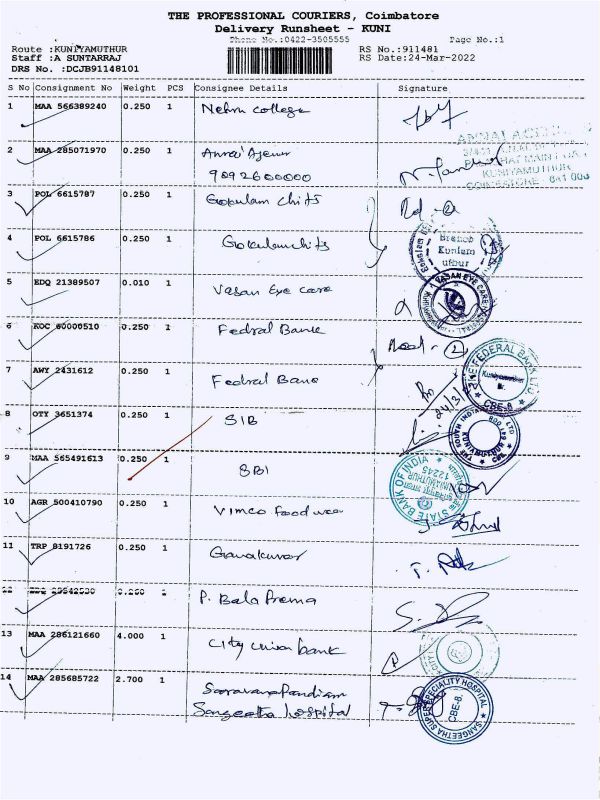 THE PROFESSIONAL COURIERS, Coimbatore
Delivery Runsheet - KUNI
Phone No.:0422-3505555 Page No.:1
Route :KUNIYAMUTHUR RS No.:911481
Staff :A SUNTARRAJ RS Date:24-Mar-2022
DRS No. :DCJB91148101
S No Consignment No Weight PCS Consignee Details Signature
1 MAA 566389240 0.250 1 Nehru College
2 MAA 285071970 0.250 1
9092600000
KUNIYAMUTHUR
3 POL 6615787 0.250 1 Gokulam Chits
4 POL 6615786 0.250 1 Gokulam chits
Branch
Kuniam
uthur
5 EDQ 21389507 0.010 1 Vasan Eye care
VASAN EYE CARE
6 KOC 60000510 0.250 1 Fedral Bank
7 AWY 2431612 0.250 1 Fedral Bank
THE FEDERAL BANK LTD
CBE-8
8 OTY 3651374 0.250 1 SIB
9 MAA 565491613 0.250 1 SBI
STATE BANK OF INDIA
12245
10 AGR 500410790 0.250 1 Vimco Food
11 TRP 8191726 0.250 1
12 1 P. Bala Prema
13 MAA 286121660 4.000 1 City union bank
14 MAA 285685722 2.700 1 Saravanapandian
Sangeetha hospital
SANGEETHA SUPER SPECIALITY HOSPITAL
CBE-8.